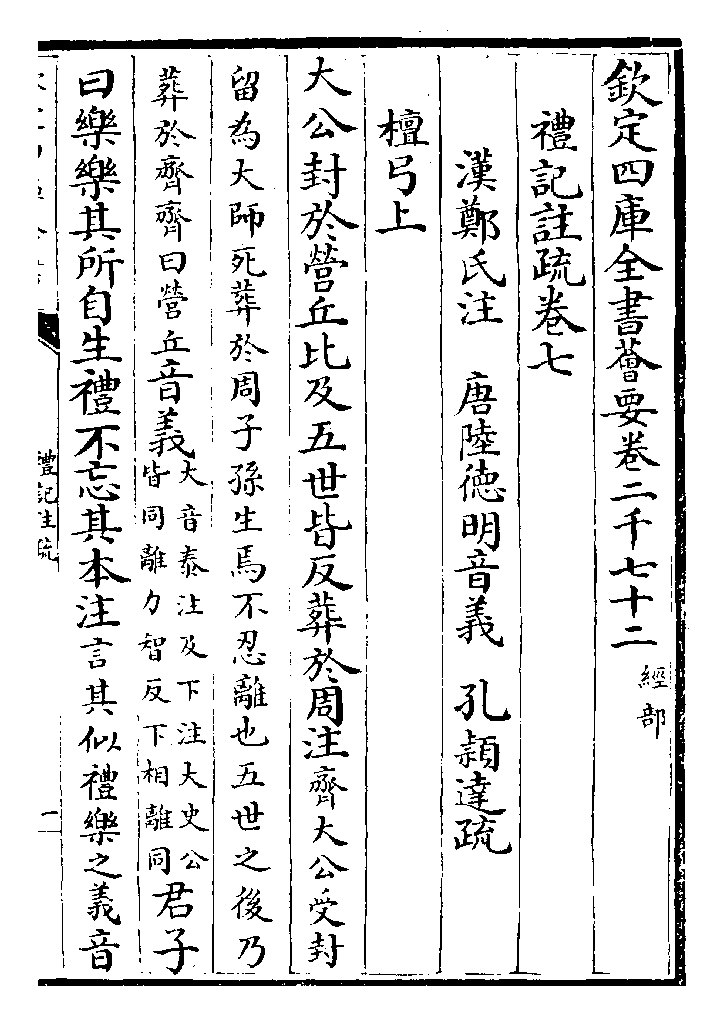 欽定四庫全書薈要卷二千七十二 經部
禮記註疏卷七
漢鄭氏注 唐陸徳明音義 孔頴達疏
檀弓上
大公封於營丘比及五世皆反葬於周注齊大公受封
留為大師死葬於周子孫生焉不忍離也五世之後乃
葬於齊齊曰營丘音義大音泰注及下注大史公皆同離力智反下相離同君子
曰樂樂其所自生禮不忘其本注言其似禮樂之義音
禮記註疏
一